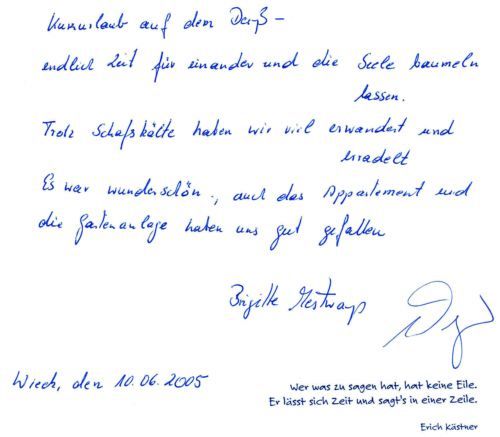 Kurzurlaub auf dem Darß –
endlich Zeit für einander und die Seele baumeln
lassen.
Trotz Schafskälte haben wir viel erwandert und
erradelt
Es war wunderschön, auch das Appartement und
die Gartenanlage haben uns gut gefallen
Brigitte
Wieck, den 10.06.2005
Wer was zu sagen hat, hat keine Eile.
Er lässt sich Zeit und sagt's in einer Zeile.
Erich Kästner